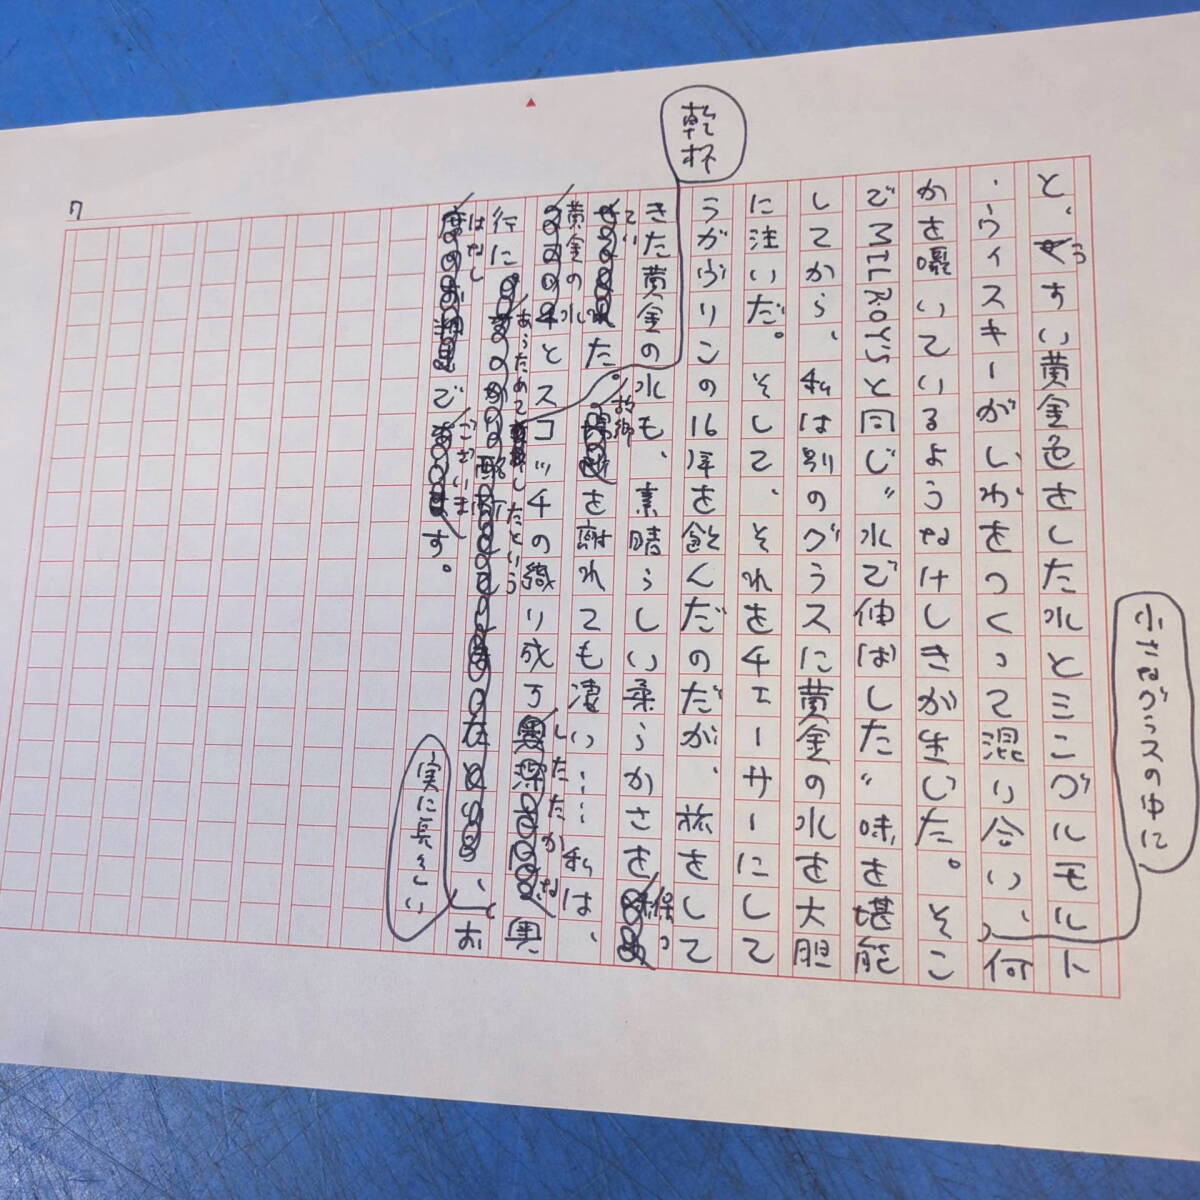 小さなグラスの中に
と、うすい黄金色をした水とミニグルモルト
・ウィスキーがしわをつくって混り合い、何
かを囁いているようなけしきが生じた。そこ
でMILROY'Sと同じ〝水で伸ばした〟味を堪能
してから、私は別のグラスに黄金の水を大胆
に注いだ。そして、それをチェーサーにして
ラガヴリンの16年を飲んだのだが、旅をして
乾杯
きた黄金の水も、素晴らしい柔らかさを保っ
ていた。故郷を離れても凄い……私は、
黄金の水とスコッチの織り成すしたたかな奥
行にあらためてしたという、お
実に長々しい
はなしでございます。
7